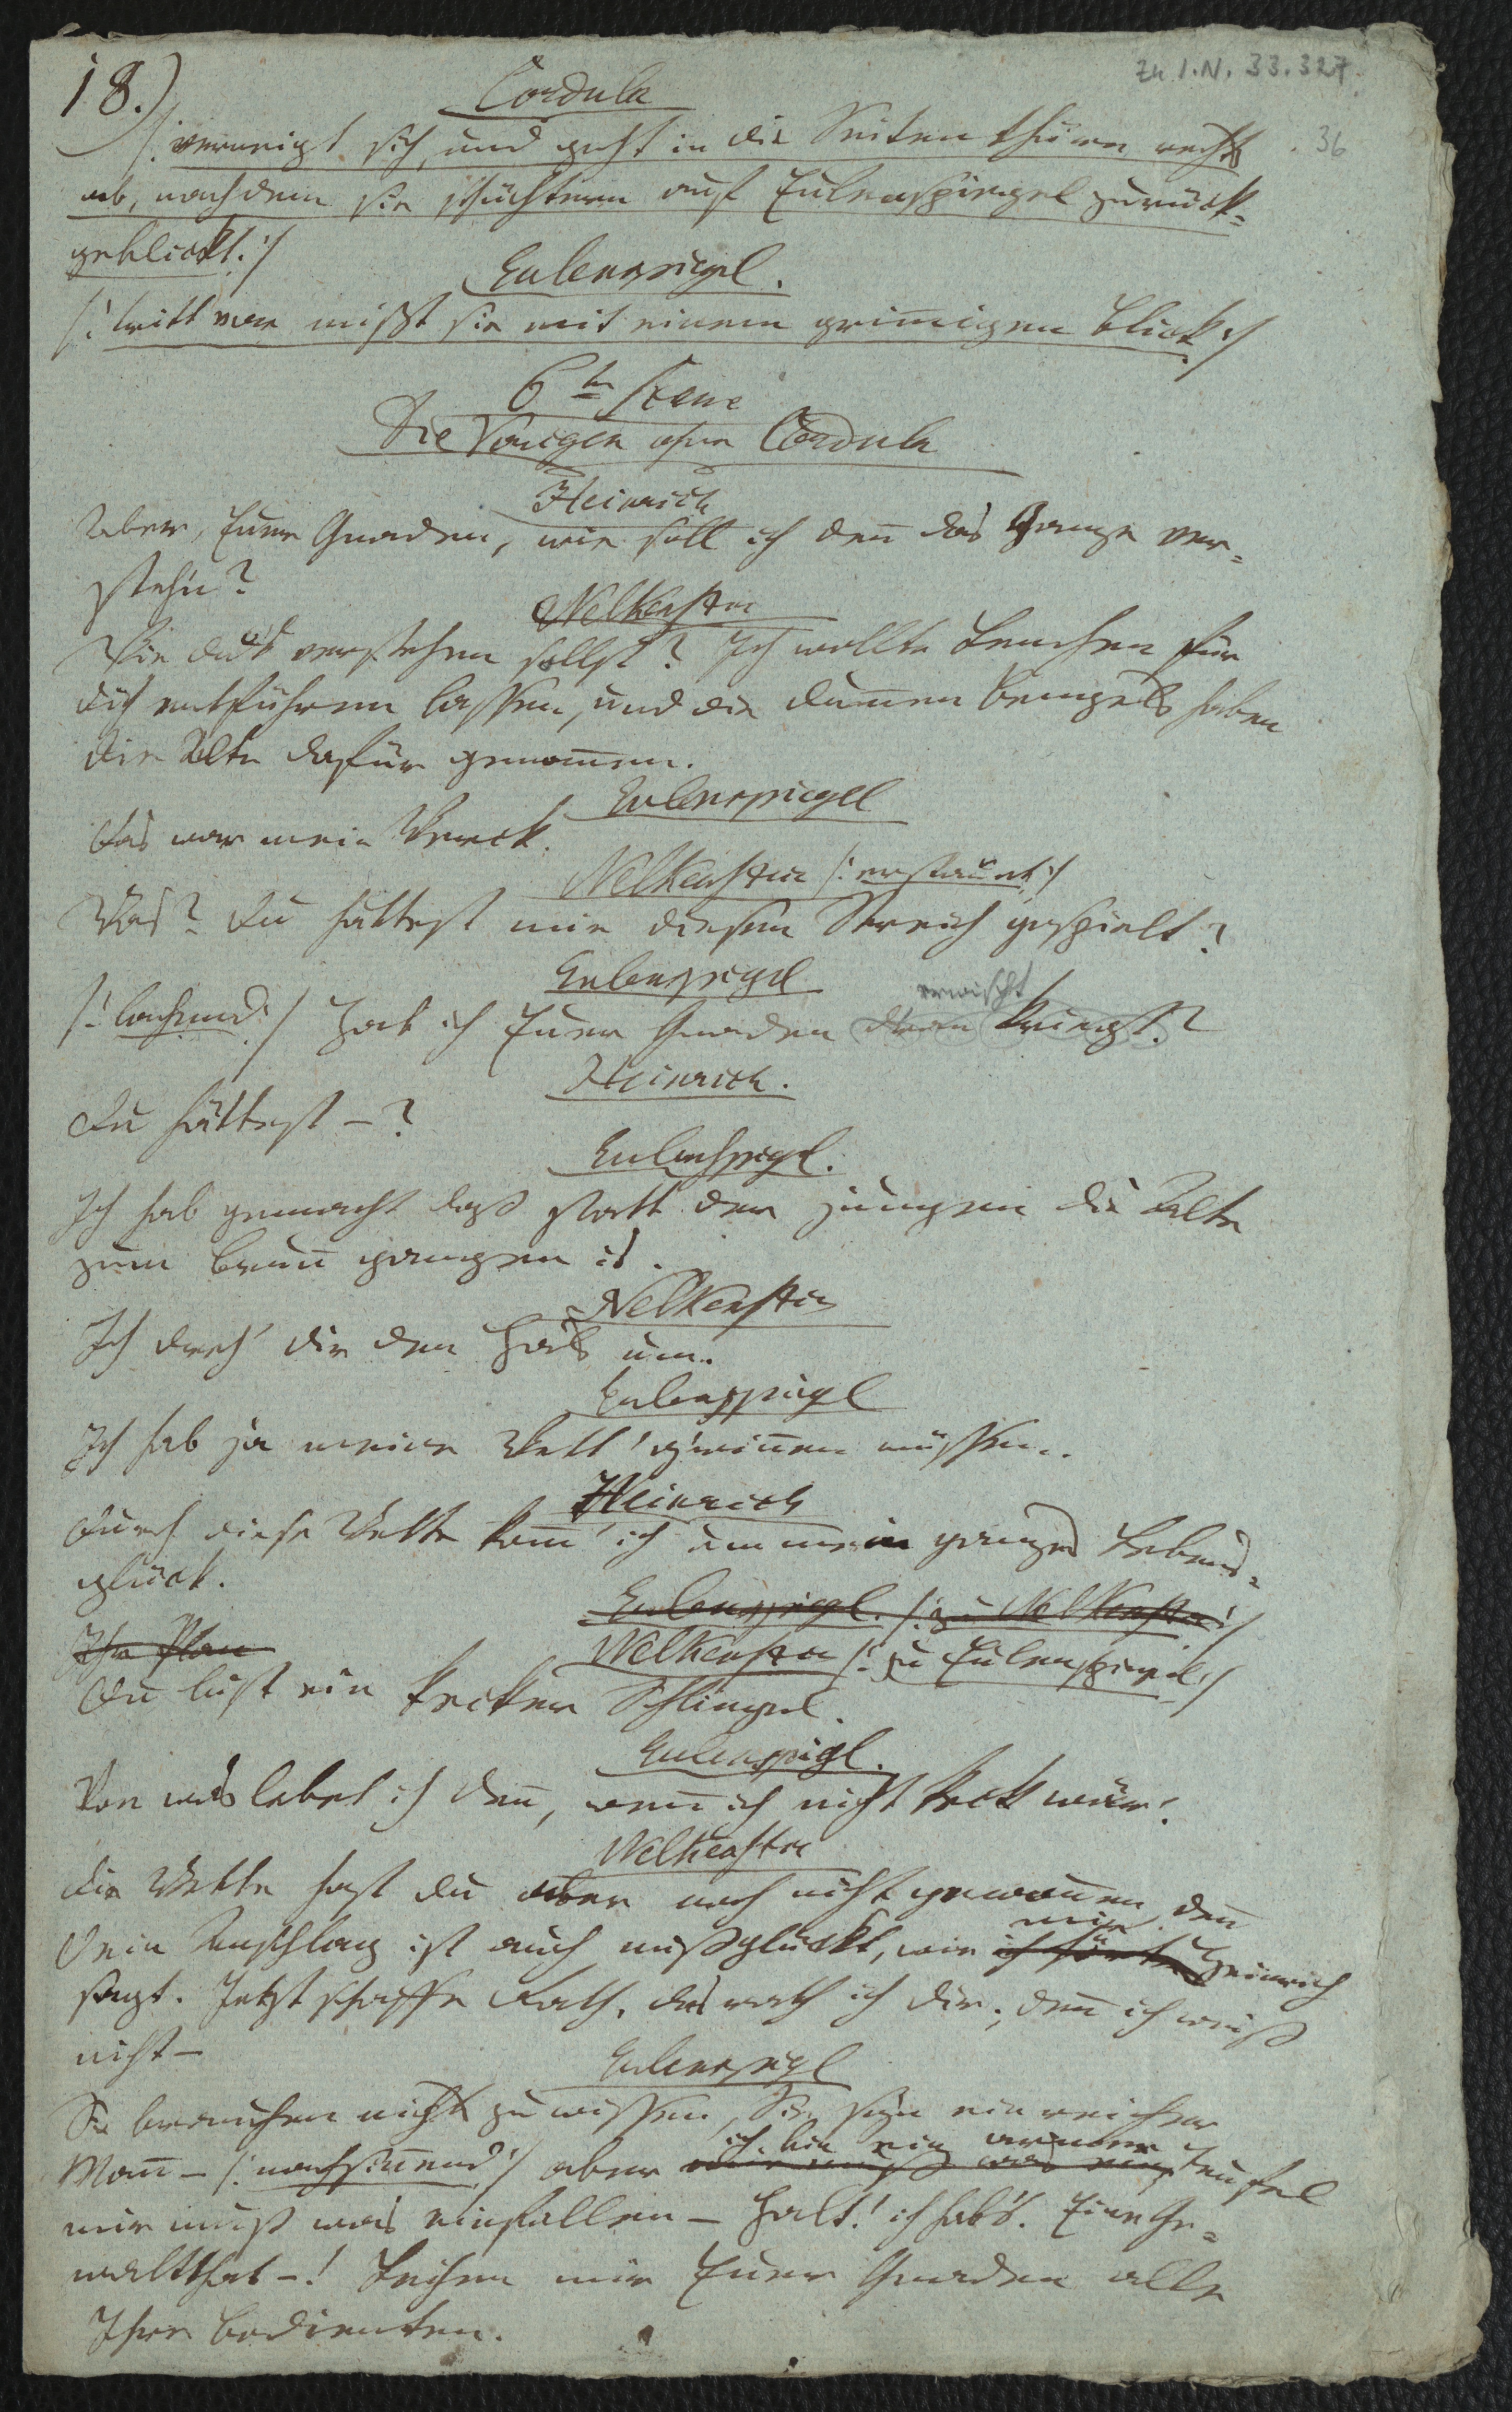 18.)
Zu I.N. 33.327
36
Cordula
/: verneigt sich, und geht in die Seitenthüren rechts
ab, nachdem sie schüchtern auf Eulenspiegel zurück=
geblickt. :/
Eulenspiegel.
/: tritt vor mißt sie mit einem grim̅igen Blick :/
6te Scene
Die Vorigen ohne Cordula
Heinrich
Aber, Euer Gnaden, wie soll ich den̅ das Ganze ver=
steh'n?
Nelkenstein
Wie du's verstehen sollst? Ich wollte Lenchen für
dich entführen lassen, und die dum̅en Bengels haben
die Alte dafür genom̅en.
Eulenspiegel
Das war mein Werck.
Nelkenstein /: erstaunt :/
Was? Du hättest mir diesen Streich gespielt?
Eulenspiegel
erwischt
/: lachend :/ Hab ich Euer Gnaden dran kriegt?
Heinrich.
Du hättest – ?
Eulenspiegel.
Ich hab gemacht daß statt der jungen die Alte
zum Brun̅ gangen is.
Nelkenstein
Ich dreh' dir den Hals um.
Eulenspiegel
Ich hab ja meine Wett' g'win̅en müssen.
Heinrich
Durch diese Wette kom̅' ich um mein ganzes Lebens=
glück.
Eulenspiegel. /: zu Nelkenstein :/
Ihr Plan
Nelkenstein /: zu Eulenspiegel :/
Du bist ein kecker Schlingel.
Eulenspiegel.
Von was lebet ich den̅, wen̅ ich nicht keck wär!
Nelkenstein
Die Wette hast du aber noch nicht gewon̅en, den̅
mir
Dein Anschlag ist auch mißglückt, wie ich hörte Heinrich
sagt. Jetzt schaffe Rath, das rath ich dir, den̅ ich weiß
nicht –
Eulenspiegel
Sie brauchen nichts zu wissen, Sie seyn ein reicher
ich bin ein armer
Man̅ – /: nachsin̅end :/ aber mir muß was ein Teufel
mir muß was einfallen – Halt! ich hab's. Eine Ge=
waltthat – ! Leihen mir Euer Gnaden alle
Ihre Bedienten.